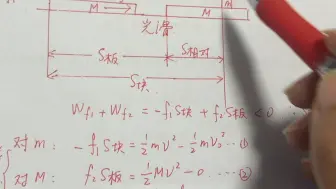 M M m
光滑
S板 S相对
S块
Wf₁ + Wf₂ = -f₁S块 + f₂S板 < 0
对m: -f₁S块 = ½mv² - ½mv₀² ... ①
对M: f₂S板 = ½Mv² - 0 ...... ②